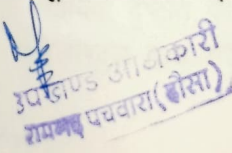 उपखण्ड अधिकारी
रामगढ़ पचवारा (दौसा)